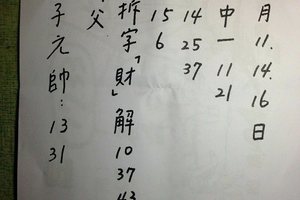 月 11. 14. 16 日
中一 11 21
14 25 37
15 6
拆字「財」解 10 37 43
父
子元帥: 13 31